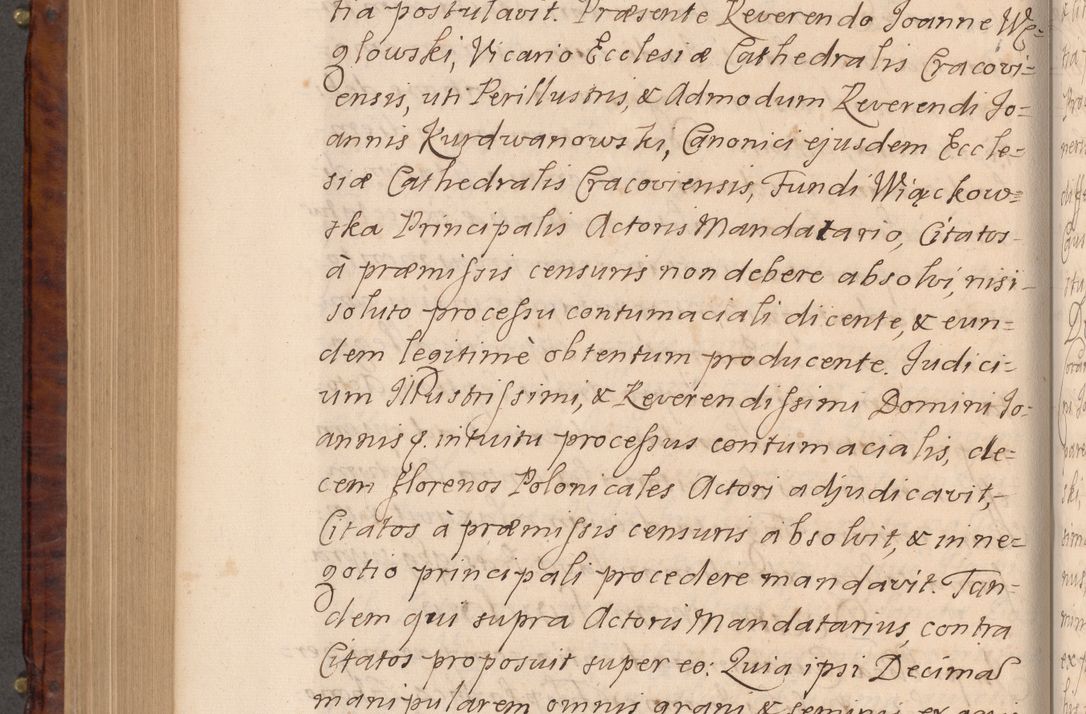 tia postulavit. Præsente Reverendo Joanne Wę=
głowski, Vicario Ecclesiæ Cathedralis Cracovi=
ensis, uti Perillustris, & Admodum Reverendi Jo=
annis Kurdwanowski, Canonici ejusdem Eccle=
siæ Cathedralis Cracoviensis, Fundi Wiąckow=
ska Principalis Actoris Mandatario, Citatos
à præmissis censuris non debere absolvi, nisi
soluto processu contumaciali dicente, & eun=
dem legitimè obtentum producente. Judici=
um Illustrissimi, & Reverendissimi Domini Jo=
annis q. intuitu processus contumacialis, de=
cem florenos Polonicales Actori adjudicavit,
Citatos à præmissis censuris absolvit, & in ne=
gotio principali procedere mandavit. Tan=
dem qui supra Actoris Mandatarius, contra
Citatos proposuit super eo: Quia ipsi Decimas
manipularem omnis grani & seminis ex agri